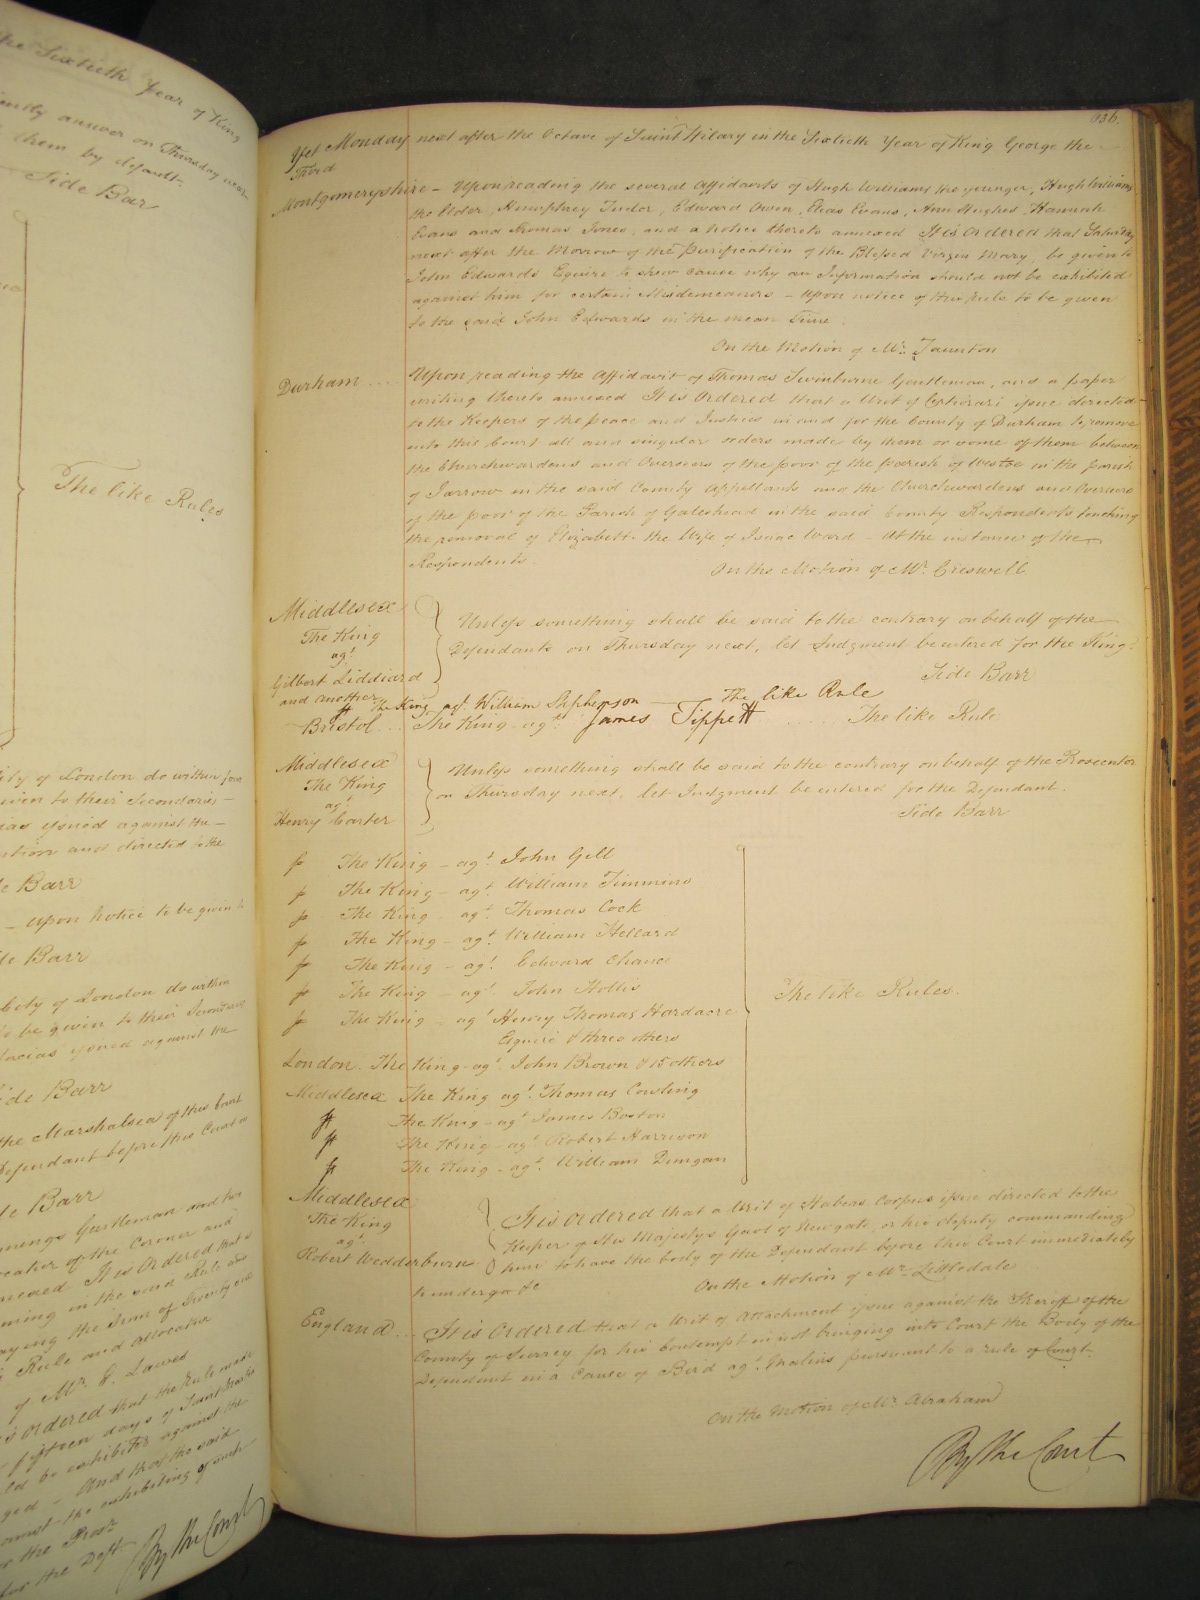 the Sixtieth Year of King
answer on Thursday next
them by default
Side Barr
The like Rules
City of London do within four
given to their Secondaries —
issued against the —
and directed to the
Side Barr
— upon Notice to be given to
Side Barr
City of London do within
to be given to their Secondaries
issued against the
Side Barr
the Marshalsea of this Court
Defendant before this Court
Side Barr
Gentleman and two
of the Coroner and
annexed It is Ordered that
in the said Rule and
paying the Sum of Twenty one
Rule and allocatur
of Mr. E. Lawes
is Ordered that the Rule made
fifteen days of Saint Martin
be exhibited against the
And that the said
against the exhibiting of such
for the Pros:r
for the Deft
By the Court
636.
Yet Monday next after the Octave of Saint Hilary in the Sixtieth Year of King George the
Third
Montgomeryshire – Upon reading the several Affidavits of Hugh Williams the younger, Hugh Williams
the Elder, Humphrey Tudor, Edward Owen, Elias Evans, Ann Hughes, Hannah
Evans and Thomas Jones, and a notice thereto annexed It is Ordered that Saturday
next after the Morrow of the Purification of the Blessed Virgin Mary, be given to
John Edwards Esquire to shew cause why an Information should not be exhibited
against him for certain Misdemeanors – Upon notice of this Rule to be given
to the said John Edwards in the mean Time.
On the Motion of Mr. Taunton
Durham .... Upon reading the Affidavit of Thomas Swinburne Gentleman, and a paper
writing thereto annexed It is Ordered that a Writ of Certiorari issue directed
to the Keepers of the peace and Justices in and for the County of Durham to remove
into this Court all and singular orders made by them or some of them between
the Churchwardens and Overseers of the poor of the parish of Westoe in the parish
of Jarrow in the said County Appellants and the Churchwardens and Overseers
of the poor of the Parish of Gateshead in the said County Respondents touching
the removal of Elizabeth the Wife of Isaac Ward – At the instance of the
Respondents
On the Motion of Mr. Creswell
Middlesex
The King
agt.
Gilbert Liddiard
and another
Unless something shall be said to the contrary on behalf of the
Defendants on Thursday next, let Judgment be entered for the King.
Side Barr
The King agt. William Stephenson — The like Rule
Bristol ... The King – agt. James Tippett ..... The like Rule
Middlesex
The King
agt.
Henry Carter
Unless something shall be said to the contrary on behalf of the Prosecutor
on Thursday next, let Judgment be entered for the Defendant.
Side Barr
The King – agt. John Gell
The King – agt. William Timmins
The King – agt. Thomas Cock
The King – agt. William Hellard
The King – agt. Edward Chance
The King – agt. John Hollis
The King – agt. Henry Thomas Hardacre
Esquire & three others
London. The King – agt. John Brown & 15 others
Middlesex The King agt. Thomas Cowling
The King – agt. James Boston
The King – agt. Robert Harrison
The King – agt. William Dungan
The like Rules.
Middlesex
The King
agt.
Robert Wedderburn
It is Ordered that a Writ of Habeas Corpus issue directed to the
Keeper of His Majestys Gaol of Newgate, or his deputy commanding
him to have the body of the Defendant before this Court immediately
to undergo &c
On the Motion of Mr. Littledale
England ... It is Ordered that a Writ of Attachment issue against the Sheriff of the
County of Surrey for his Contempt in not bringing into Court the Body of the
Defendant in a Cause of Bird agt. Malins pursuant to a rule of Court.
On the Motion of Mr. Abraham
By the Court